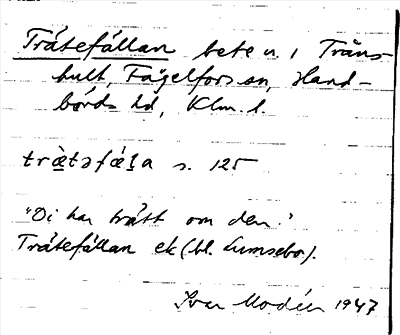 Trätefällan bete n. i Träns-
hult, Fågelfors sn, Hand-
börds hd, Klm. l.
trä̀təfäl̀a s. 125
"Di har trätt om den."
Trätefällan ek (bl. Lumsebo).
Ivar Modéer 1947